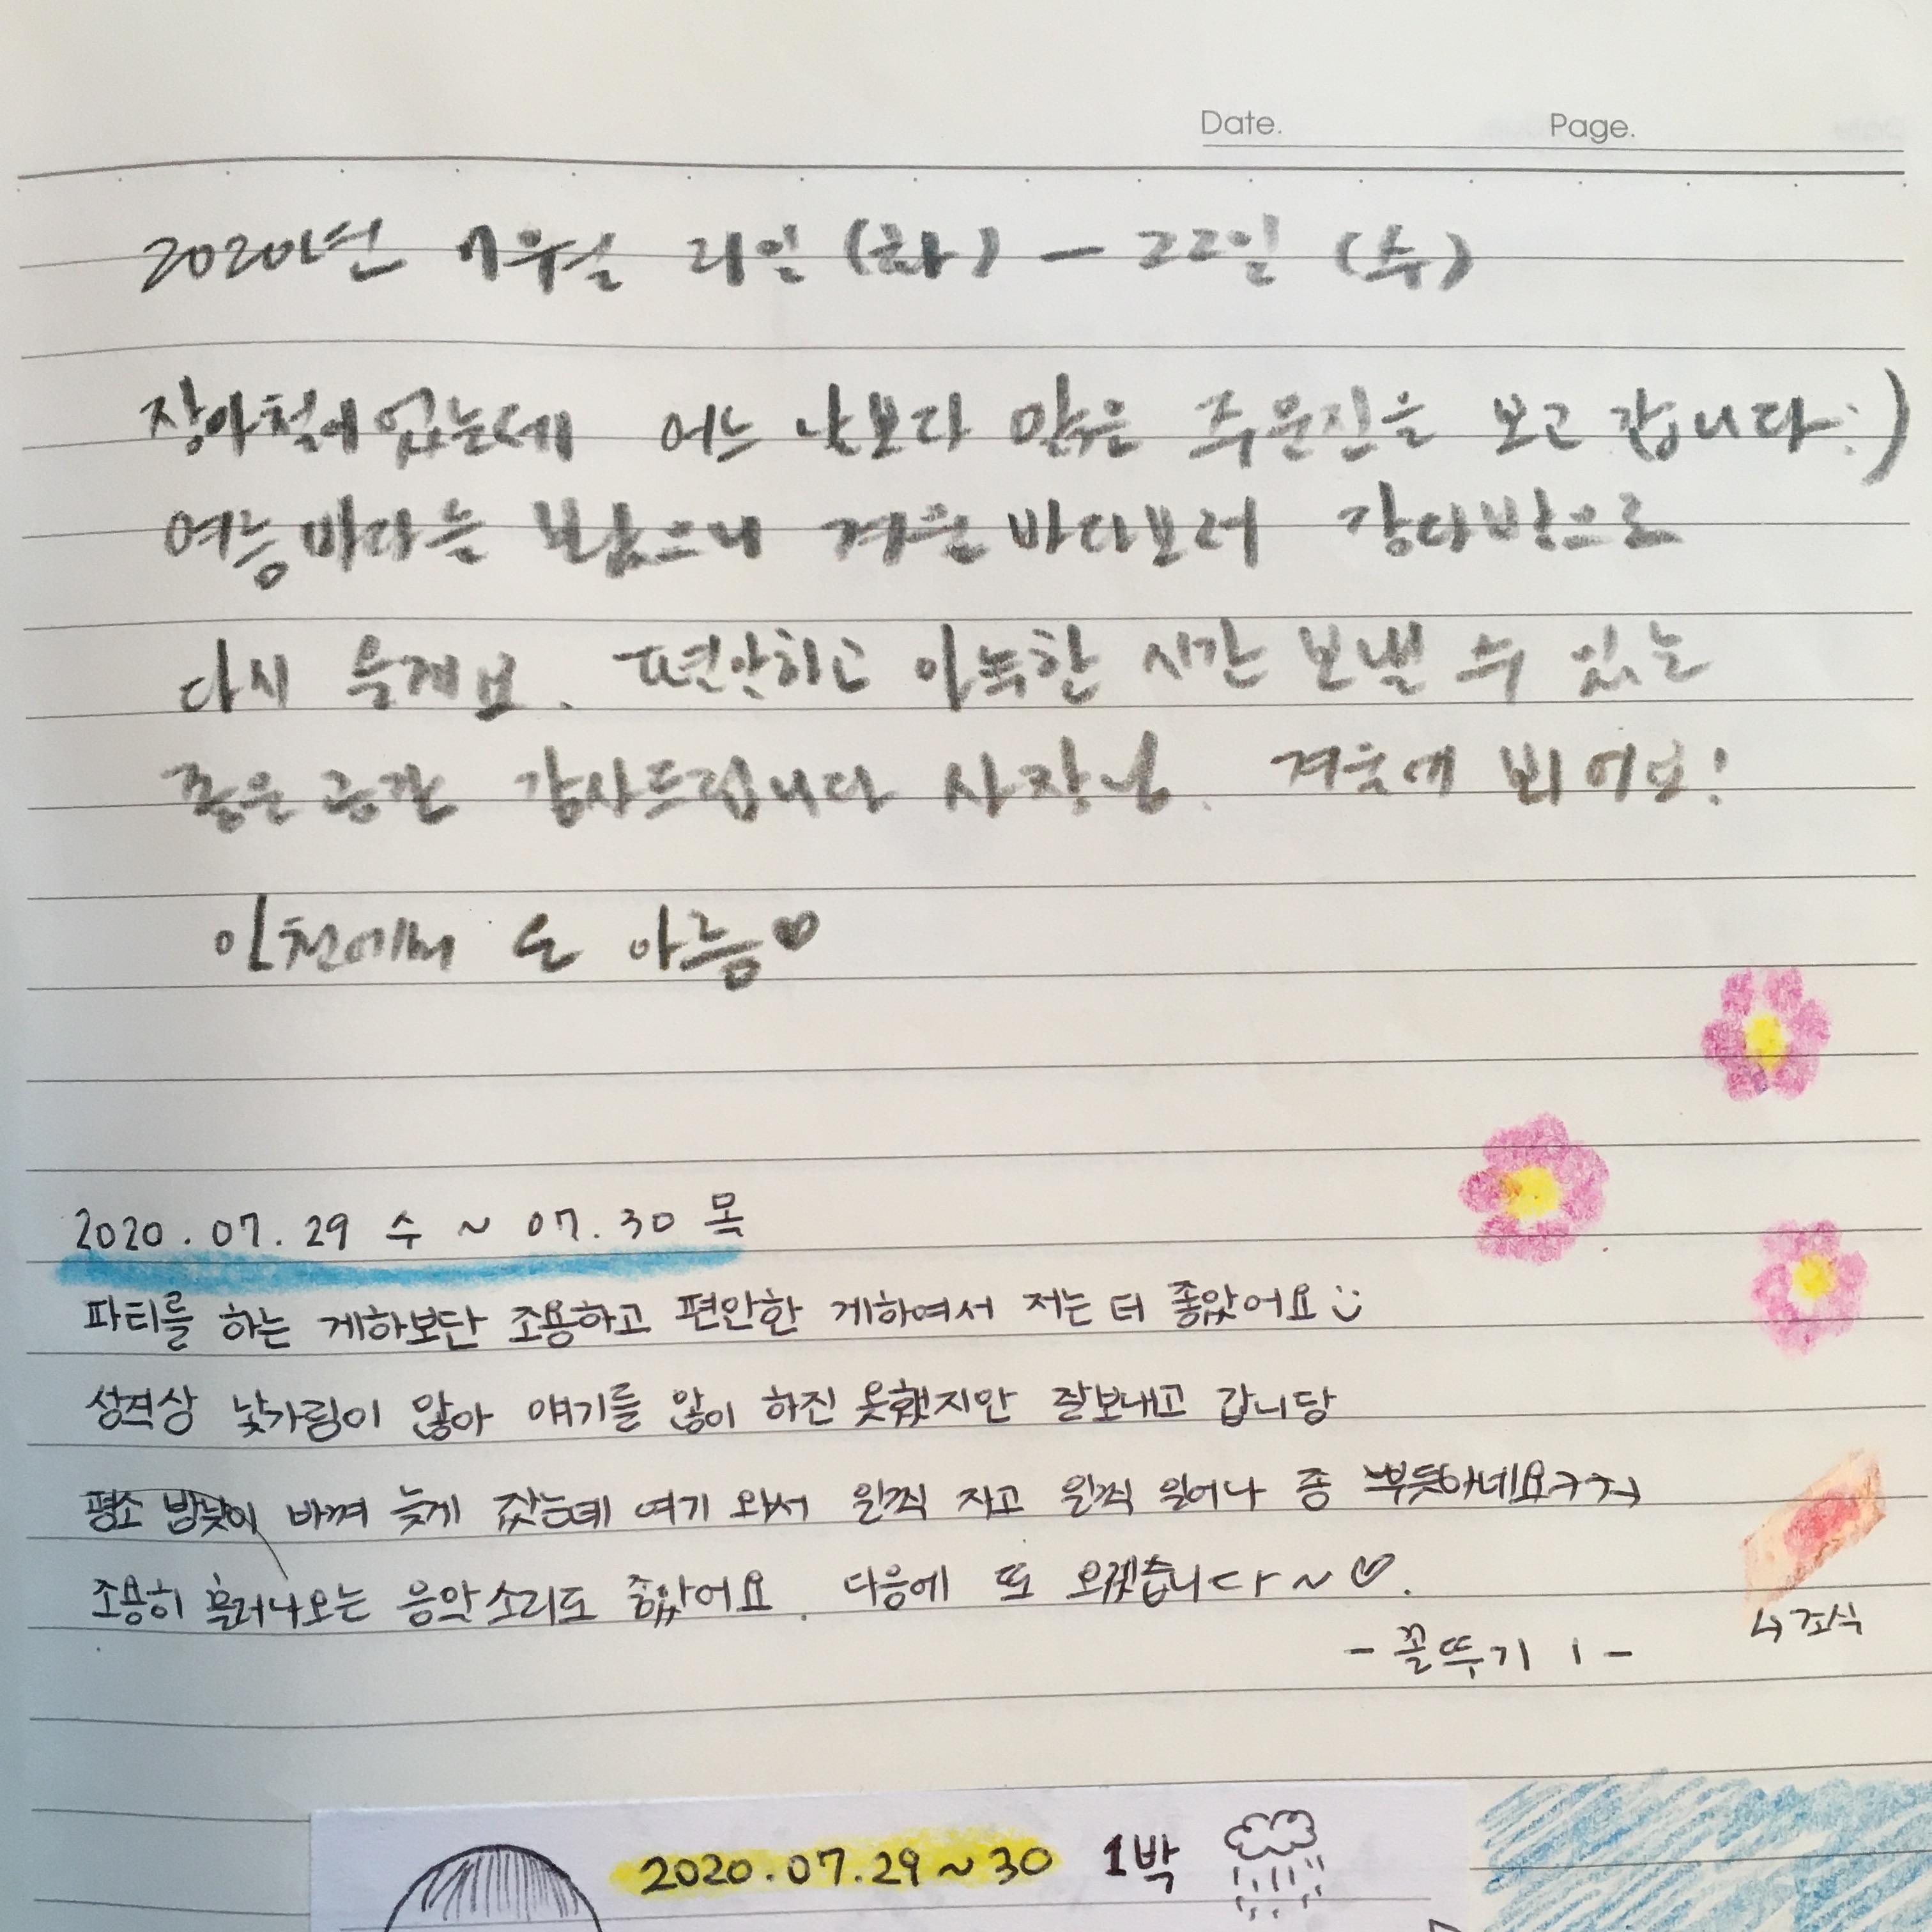 Date. Page.
2020년 7월 21일 (화) - 22일 (수)
장마철에 왔는데 어느 날보다 맑은 주문진을 보고 갑니다:)
여름바다는 보았으니 겨울 바다보러 강다방으로
다시 올게요. 편안하고 아늑한 시간 보낼 수 있는
좋은 공간 감사드립니다 사장님. 겨울에 뵈어요!
인천에서 온 아름♡
2020.07.29 수 ~ 07.30 목
파티를 하는 게하보단 조용하고 편안한 게하여서 저는 더 좋았어요
성격상 낯가림이 많아 얘기를 많이 하진 못했지만 잘보내고 갑니당
평소 밤낮이 바껴 늦게 잤는데 여기 와서 일찍 자고 일찍 일어나 좀 뿌듯하네요ㅋㅋ
조용히 흘러나오는 음악소리도 좋았어요. 다음에 또 오겠습니다~♡.
-꼴뚜기 1-
↳조식
2020.07.29~30 1박